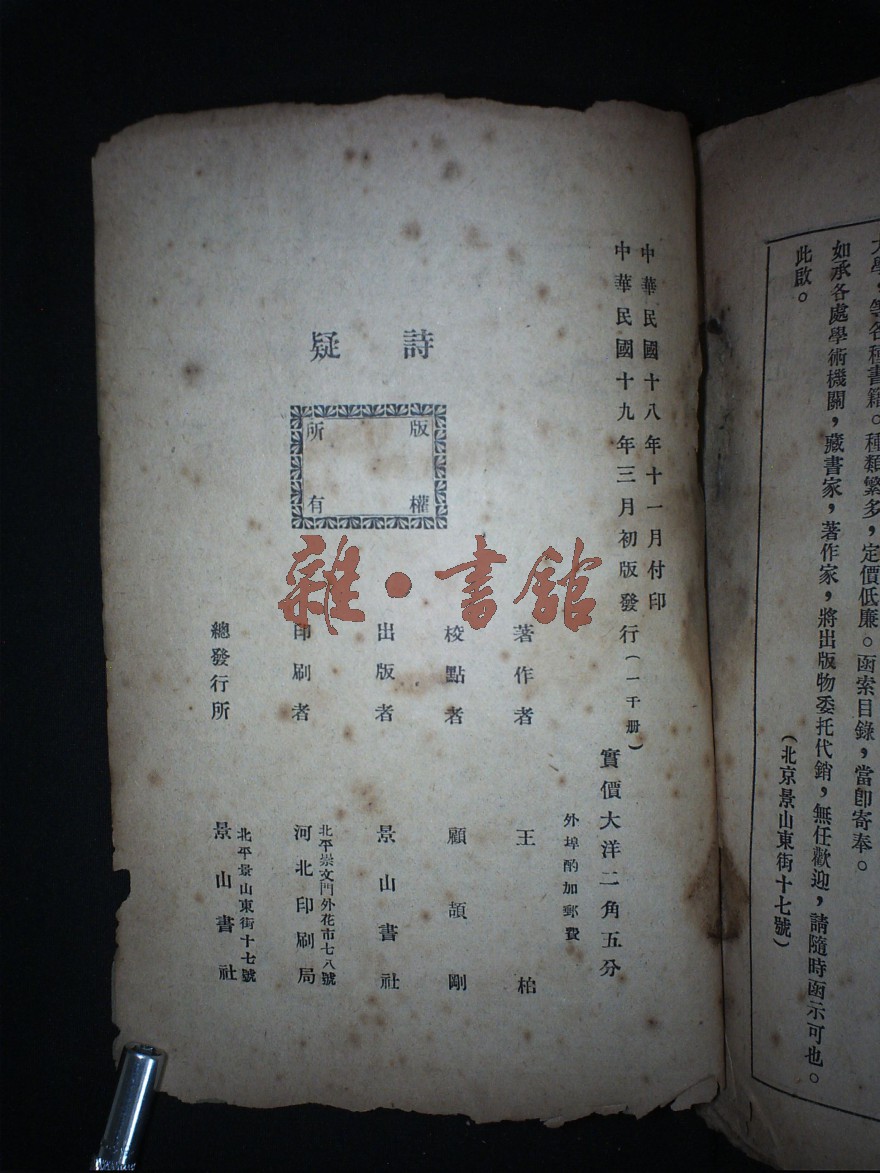 大學，等各種書籍。種類繁多，定價低廉。函索目錄，當即寄奉。
如承各處學術機關，藏書家，著作家，將出版物委托代銷，無任歡迎，請隨時函示可也。
此啟。
(北京景山東街十七號)
中華民國十八年十一月付印
中華民國十九年三月初版發行(一千册)
實價大洋二角五分
外埠酌加郵費
詩疑
版權
所有
著作者 王柏
校點者 顧頡剛
出版者 景山書社
印刷者 北平崇文門外花市七八號
河北印刷局
總發行所 北平景山東街十七號
景山書社
雜·書館